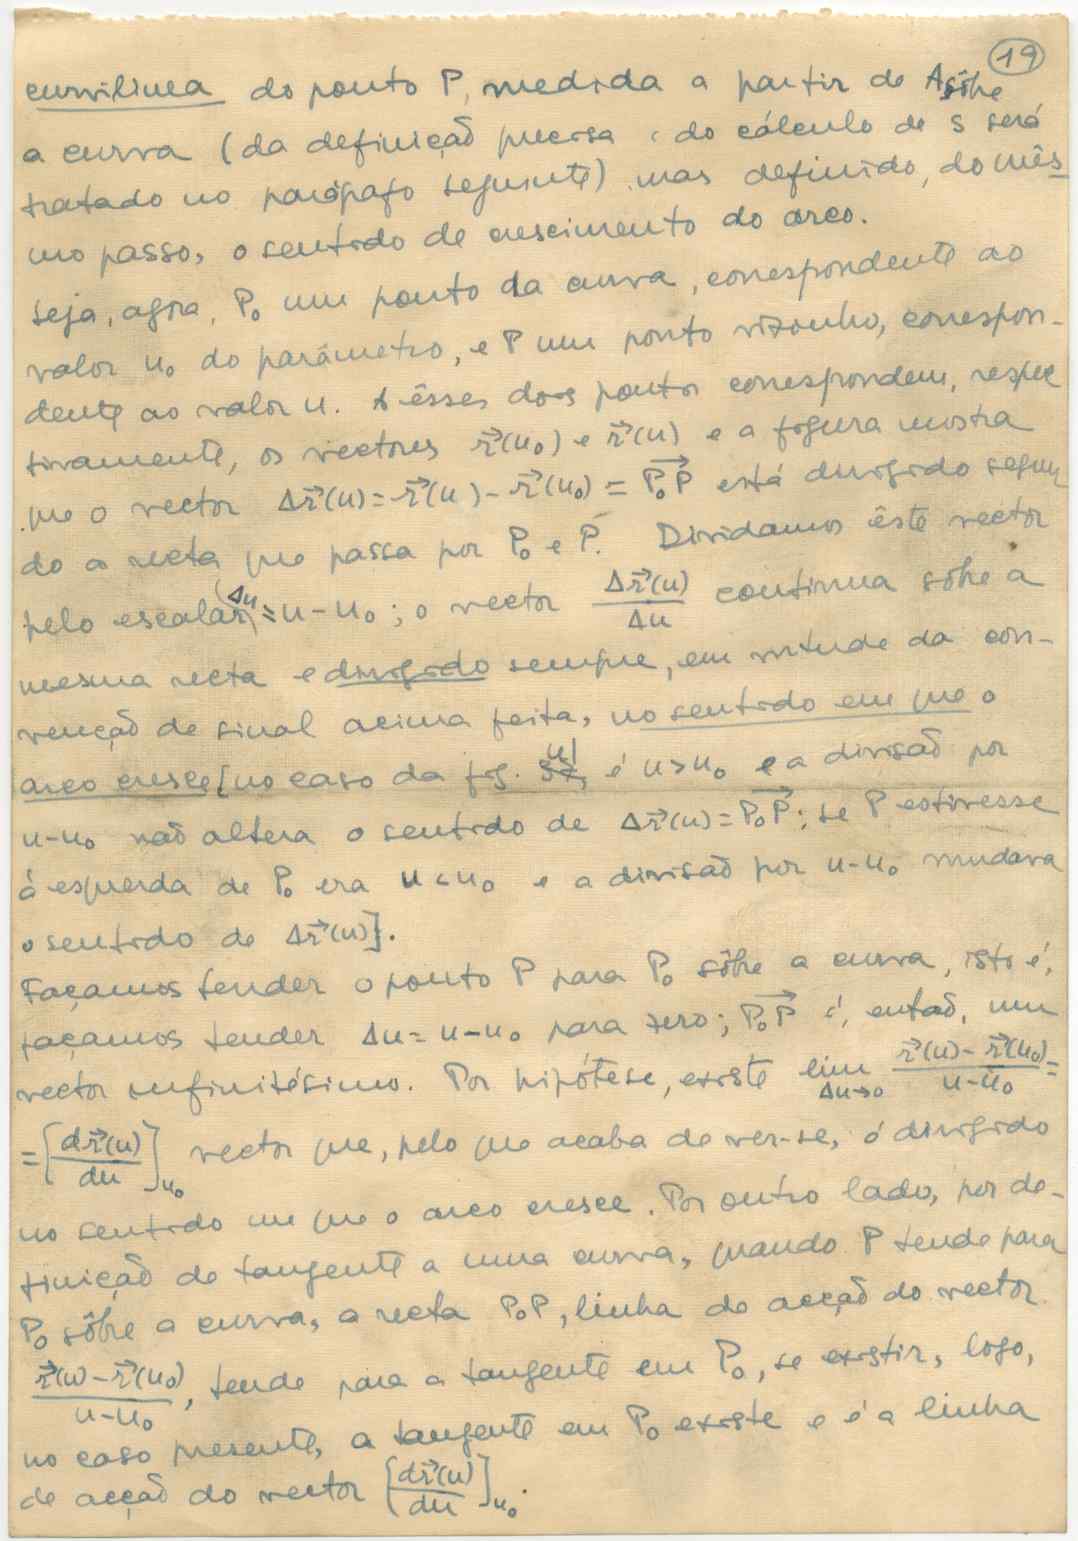 19
curvilínea do ponto P, medida a partir de A, sôbre
a curva (da definição precisa e do cálculo de s será
tratado no parágrafo seguinte) mas definido, do mês
mo passo, o sentido de crescimento do arco.
Seja, agora, P₀ um ponto da curva, correspondente ao
valor u₀ do parâmetro, e P um ponto vizinho, correspon-
dente ao valor u. A êsses dois pontos correspondem, respec
tivamente, os vectores r⃗(u₀) e r⃗(u) e a figura mostra
que o vector Δr⃗(u) = r⃗(u) - r⃗(u₀) = P₀P⃗ está dirigido segun
do a recta que passa por P₀ e P. Dividamos êste vector
pelo escalar Δu = u - u₀; o vector Δr⃗(u)/Δu continua sôbre a
mesma recta e dirigido sempre, em virtude da con-
venção de sinal acima feita, no sentido em que o
arco cresce [no caso da fig. é u > u₀ e a divisão por
u-u₀ não altera o sentido de Δr⃗(u) = P₀P⃗; se P estivesse
à esquerda de P₀ era u < u₀ e a divisão por u-u₀ mudava
o sentido de Δr⃗(u)].
Façamos tender o ponto P para P₀ sôbre a curva, isto é,
façamos tender Δu = u-u₀ para zero; P₀P⃗ é, então, um
vector infinitésimo. Por hipótese, existe lim Δu→0 (r⃗(u) - r⃗(u₀))/(u-u₀) =
= [dr⃗(u)/du]u₀ vector que, pelo que acaba de ver-se, é dirigido
no sentido em que o arco cresce. Por outro lado, por de-
finição de tangente a uma curva, quando P tende para
P₀ sôbre a curva, a recta P₀P, linha de acção do vector
(r⃗(u) - r⃗(u₀))/(u-u₀), tende para a tangente em P₀, se existir, logo,
no caso presente, a tangente em P₀ existe e é a linha
de acção do vector [dr⃗(u)/du]u₀.